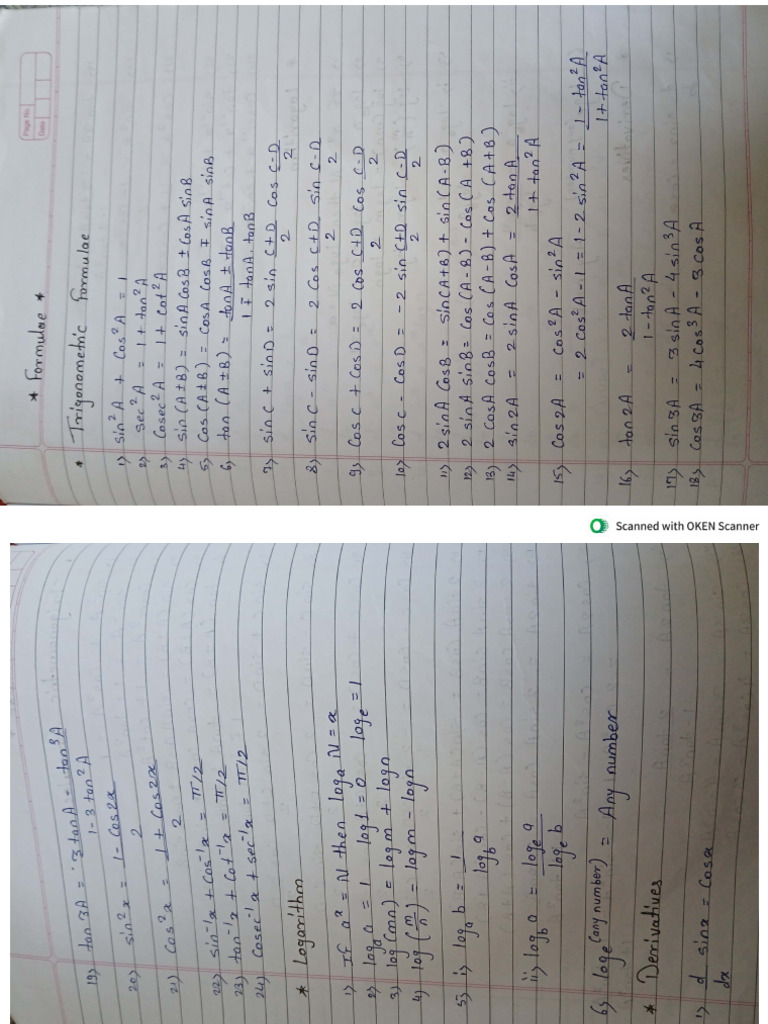 Page No.
Date
* Formulae *
* Trigonometric Formulae
1) sin²A + Cos²A = 1
2) sec²A = 1 + tan²A
3) Cosec²A = 1 + Cot²A
4) sin(A±B) = sinA CosB ± CosA sinB
5) Cos(A±B) = CosA CosB ∓ sinA sinB
6) tan(A±B) = tanA ± tanB
1 ∓ tanA.tanB
7) sinC + sinD = 2 sin C+D/2 Cos C-D/2
8) sinC - sinD = 2 Cos C+D/2 sin C-D/2
9) CosC + CosD = 2 Cos C+D/2 Cos C-D/2
10) CosC - CosD = -2 sin C+D/2 sin C-D/2
11) 2 sinA CosB = sin(A+B) + sin(A-B)
12) 2 sinA sinB = Cos(A-B) - Cos(A+B)
13) 2 CosA CosB = Cos(A-B) + Cos(A+B)
14) sin2A = 2 sinA CosA = 2 tanA
1 + tan²A
15) Cos2A = Cos²A - sin²A
= 2 Cos²A - 1 = 1 - 2 sin²A = 1 - tan²A
1 + tan²A
16) tan2A = 2 tanA
1 - tan²A
17) sin3A = 3 sinA - 4 sin³A
18) Cos3A = 4 Cos³A - 3 CosA
Scanned with OKEN Scanner
19) tan3A = 3 tanA - tan³A
1 - 3 tan²A
20) sin²x = 1 - Cos2x
2
21) Cos²x = 1 + Cos2x
2
22) sin⁻¹x + Cos⁻¹x = π/2
23) tan⁻¹x + Cot⁻¹x = π/2
24) Cosec⁻¹x + sec⁻¹x = π/2
* Logarithm
1) If aˣ = N then logₐ N = x
2) logₐ a = 1 log 1 = 0 logₑe = 1
3) log(mn) = log m + log n
4) log(m/n) = log m - log n
5) i) logₐ b = 1
log_b a
ii) log_b a = logₑ a
logₑ b
6) logₑ(any number) = Any number
* Derivatives
1) d sinx = Cosx
dx